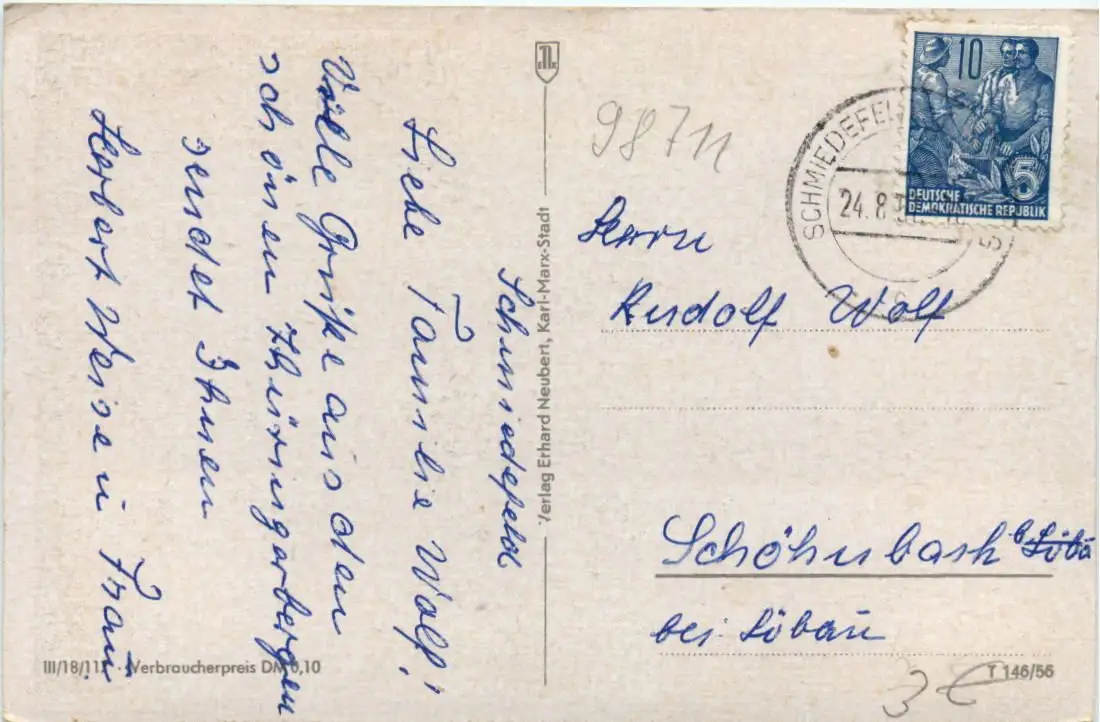 Schmiedefeld
Liebe Familie Wolf!
Viele Grüße aus den
schönen Thüringerbergen
sendet Ihnen
Herbert Weise u. Frau.
Verlag Erhard Neubert, Karl-Marx-Stadt
III/18/11 · Verbraucherpreis DM 0,10
9871
10
5
DEUTSCHE
DEMOKRATISCHE REPUBLIK
SCHMIEDEFEL
24.8.
Herrn
Rudolf Wolf
Schöhnbach b. Löba
bei Löbau
3 €
T 146/56